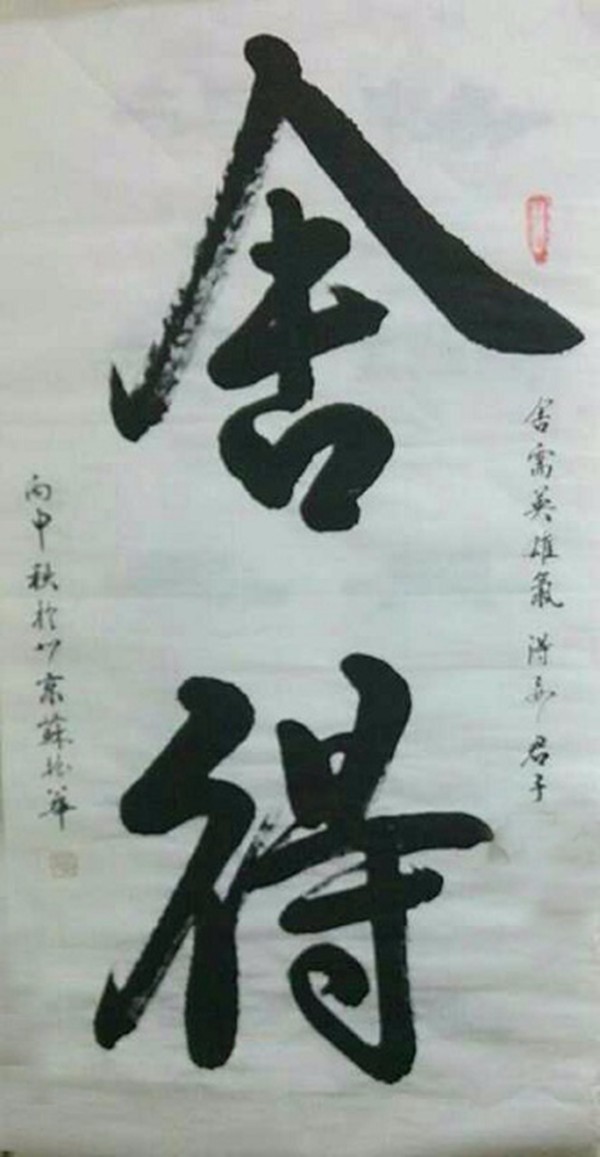 舍得
舍需英雄氣 得與君子
丙申秋於北京蘇
華